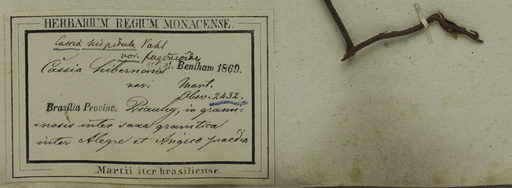 HERBARIUM REGIUM MONACENSE.
Cassia hispidula Vahl
var. fagonioides
Cassia
det. Bentham 1869.
var. Mart.
Obsv. 2432.
Brasilia Provinc. Piauhy, in grami-
nosis inter saxa granitica
inter Alegre et Angico praedia
Martii iter brasiliense.